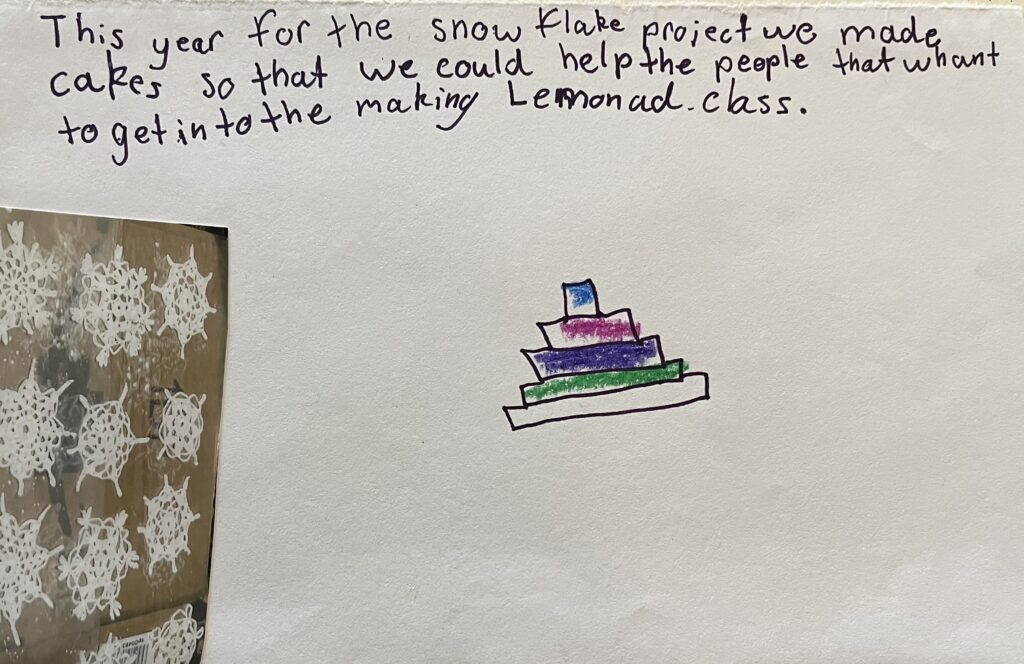 This year for the snow flake project we made
cakes so that we could help the people that whant
to get into the making Lemonad.class.